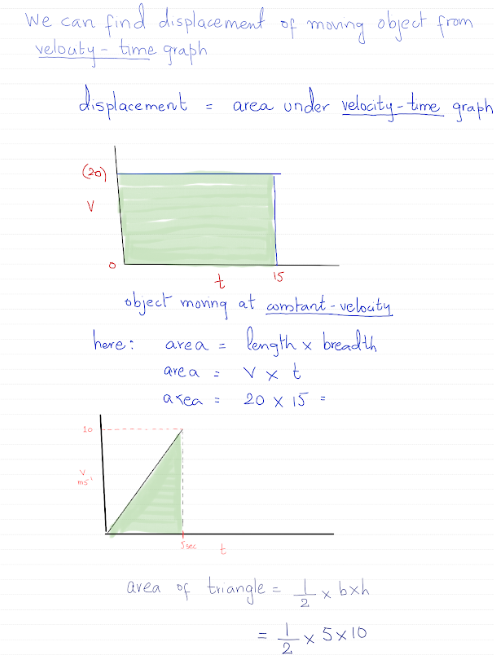 We can find displacement of moving object from
velocity - time graph
displacement = area under velocity-time graph
(20)
V
0
t
15
object moving at constant-velocity
here: area = length x breadth
area = V x t
area = 20 x 15 =
10
V
ms⁻¹
5sec
t
area of triangle = 1/2 x bxh
= 1/2 x 5x10